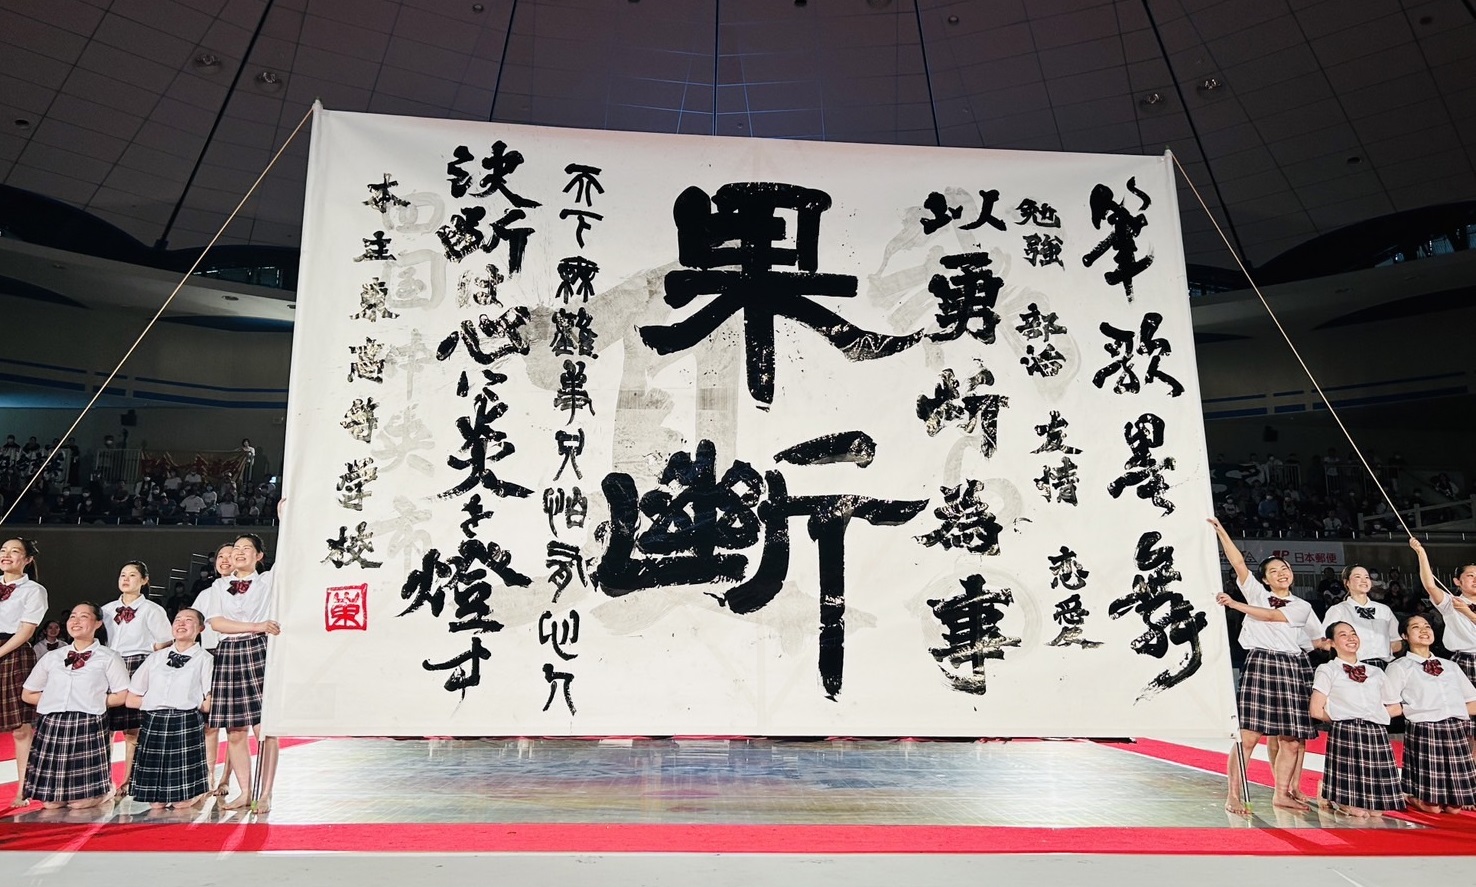 筆歌墨舞
勉強 部活 友情 恋愛
以勇断為事
果斷
天下無難事只怕有心人
決断は心に炎を燈す
四国中央市
本庄東高等学校
東
日本郵便